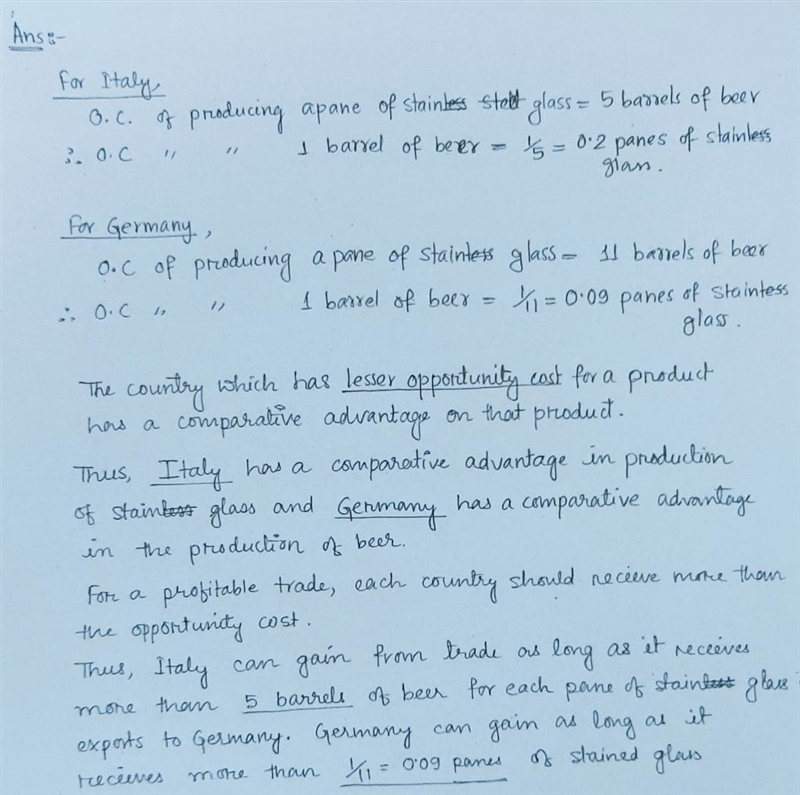 Ans:-
For Italy,
O.C. of producing a pane of stainless steel glass = 5 barrels of beer
∴ O.C " " 1 barrel of beer = 1/5 = 0.2 panes of stainless
glass.
For Germany,
O.C of producing a pane of stainless glass = 11 barrels of beer
∴ O.C " " 1 barrel of beer = 1/11 = 0.09 panes of stainless
glass.
The country which has lesser opportunity cost for a product
has a comparative advantage on that product.
Thus, Italy has a comparative advantage in production
of stainless glass and Germany has a comparative advantage
in the production of beer.
For a profitable trade, each country should recieve more than
the opportunity cost.
Thus, Italy can gain from trade as long as it receives
more than 5 barrels of beer for each pane of stainless glass
exports to Germany. Germany can gain as long as it
recieves more than 1/11 = 0.09 panes of stained glass